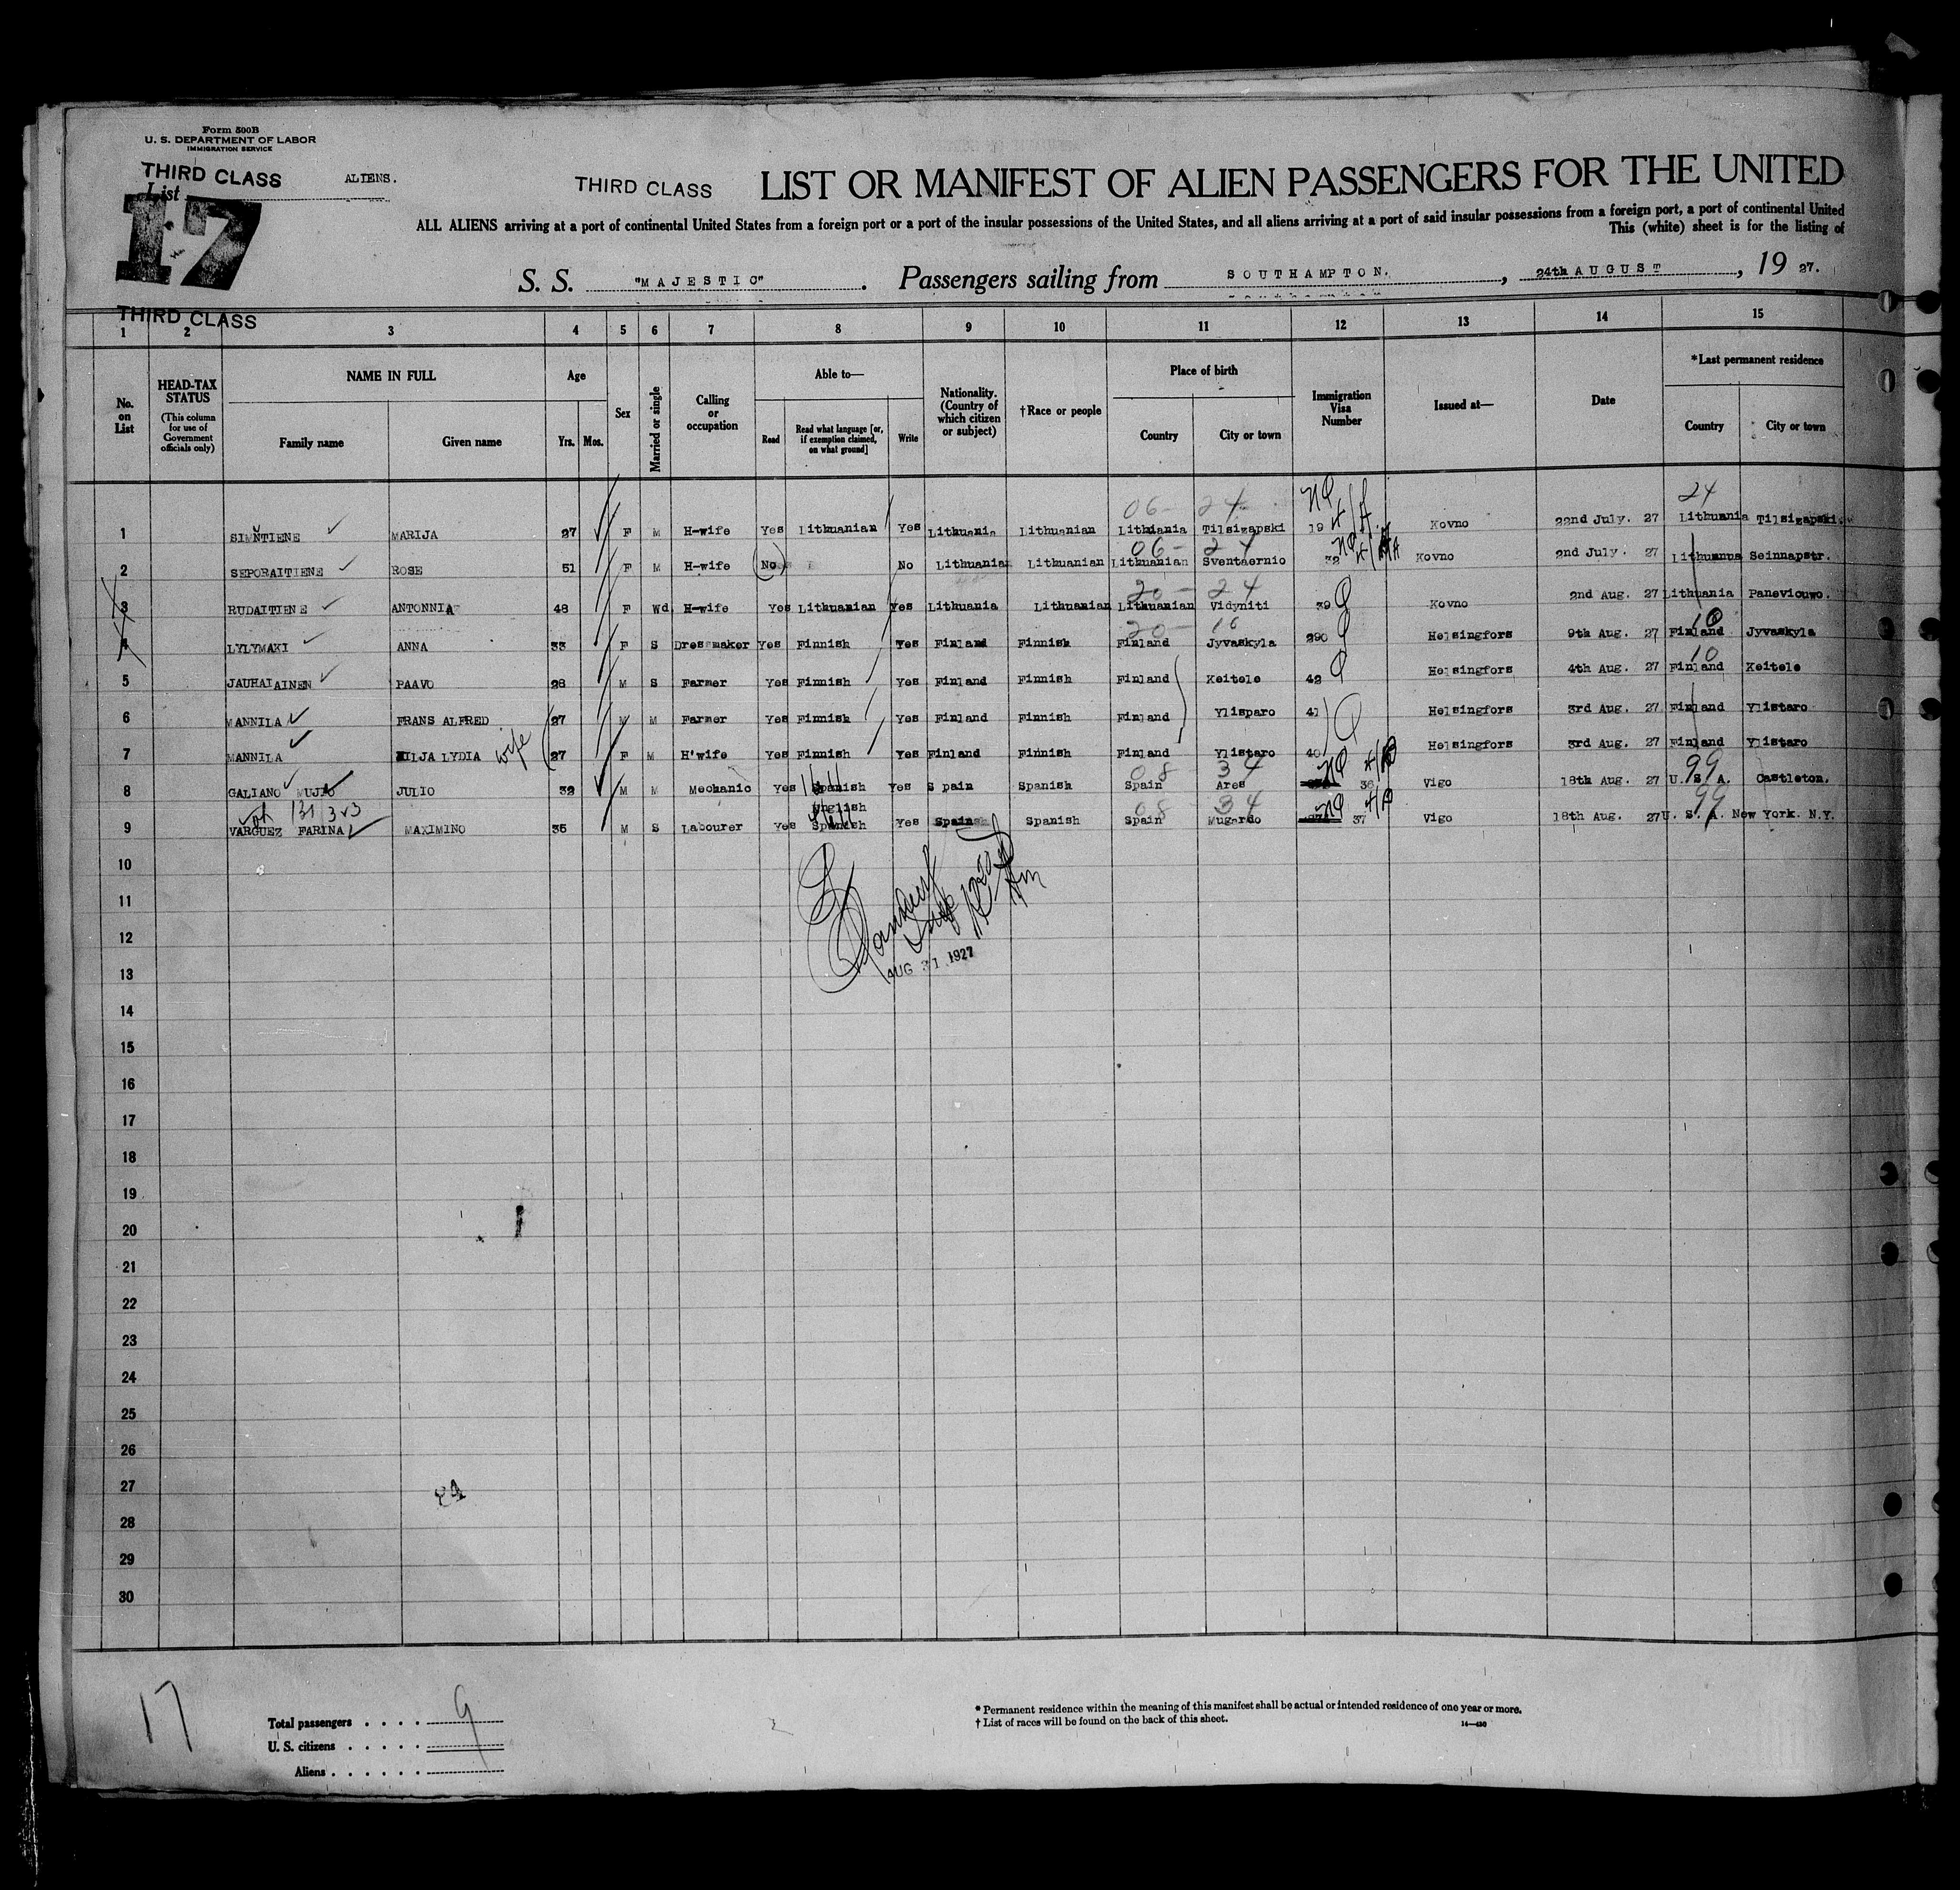 Form 500B
U. S. DEPARTMENT OF LABOR
IMMIGRATION SERVICE
THIRD CLASS ALIENS.
List
17
THIRD CLASS LIST OR MANIFEST OF ALIEN PASSENGERS FOR THE UNITED
ALL ALIENS arriving at a port of continental United States from a foreign port or a port of the insular possessions of the United States, and all aliens arriving at a port of said insular possessions from a foreign port, a port of continental United
This (white) sheet is for the listing of
S. S. "MAJESTIC". Passengers sailing from SOUTHAMPTON., 24th AUGUST, 19 27.
THIRD CLASS
1 2 3 4 5 6 7 8 9 10 11 12 13 14 15
No. on List
HEAD-TAX STATUS (This column for use of Government officials only)
NAME IN FULL
Family name Given name
Age
Yrs. Mos.
Sex
Married or single
Calling or occupation
Able to—
Read Read what language [or, if exemption claimed, on what ground] Write
Nationality. (Country of which citizen or subject)
†Race or people
Place of birth
Country City or town
Immigration Visa Number
Issued at—
Date
*Last permanent residence
Country City or town
06- 24 24
1 SIMNTIENE MARIJA 27 F M H-wife Yes Lithuanian Yes Lithuania Lithuanian Lithuania Tilsizapski 19 Kovno 22nd July. 27 Lithuania Tilsizapski.
06- 24
2 SEPORAITIENE ROSE 51 F M H-wife (No) No Lithuania Lithuanian Lithuanian Sventaernio 32 Kovno 2nd July. 27 Seinnapstr.
20- 24
3 RUDAITIENE ANTONNIA 48 F Wd H-wife Yes Lithuanian Yes Lithuania Lithuanian Lithuanian Vidyniti 39 Kovno 2nd Aug. 27 Lithuania Panevicuwo.
20- 10 10
4 LYLYMAKI ANNA 33 F S Dressmaker Yes Finnish Yes Finland Finnish Finland Jyvaskyla 290 Helsingfors 9th Aug. 27 Finland Jyvaskyla
10
5 JAUHAIAINEN PAAVO 28 M S Farmer Yes Finnish Yes Finland Finnish Finland Keitele 42 Helsingfors 4th Aug. 27 Finland Keitele
6 MANNILA FRANS ALFRED 27 M M Farmer Yes Finnish Yes Finland Finnish Finland Ylisparo 41 Helsingfors 3rd Aug. 27 Finland Ylistaro
7 MANNILA HILJA LYDIA wife 27 F M H'wife Yes Finnish Yes Finland Finnish Finland Ylistaro 40 Helsingfors 3rd Aug. 27 Finland Ylistaro
08 34 99
8 GALIANO MUJIO JULIO 32 M M Mechanic Yes Spanish Yes Spain Spanish Spain Ares 36 Vigo 18th Aug. 27 U. S. A. Castleton.
English
08 34 99
9 VARGUEZ FARINA MAXIMINO 35 M S Labourer Yes Spanish Yes Spain Spanish Spain Mugardo 37 Vigo 18th Aug. 27 U. S. A. New York. N.Y.
10
11
12
AUG 31 1927
13
14
15
16
17
18
19
20
21
22
23
24
25
26
27
28
29
30
17
Total passengers . . . . 9
U. S. citizens . . . . .
Aliens . . . . . .
* Permanent residence within the meaning of this manifest shall be actual or intended residence of one year or more.
† List of races will be found on the back of this sheet.
14—430